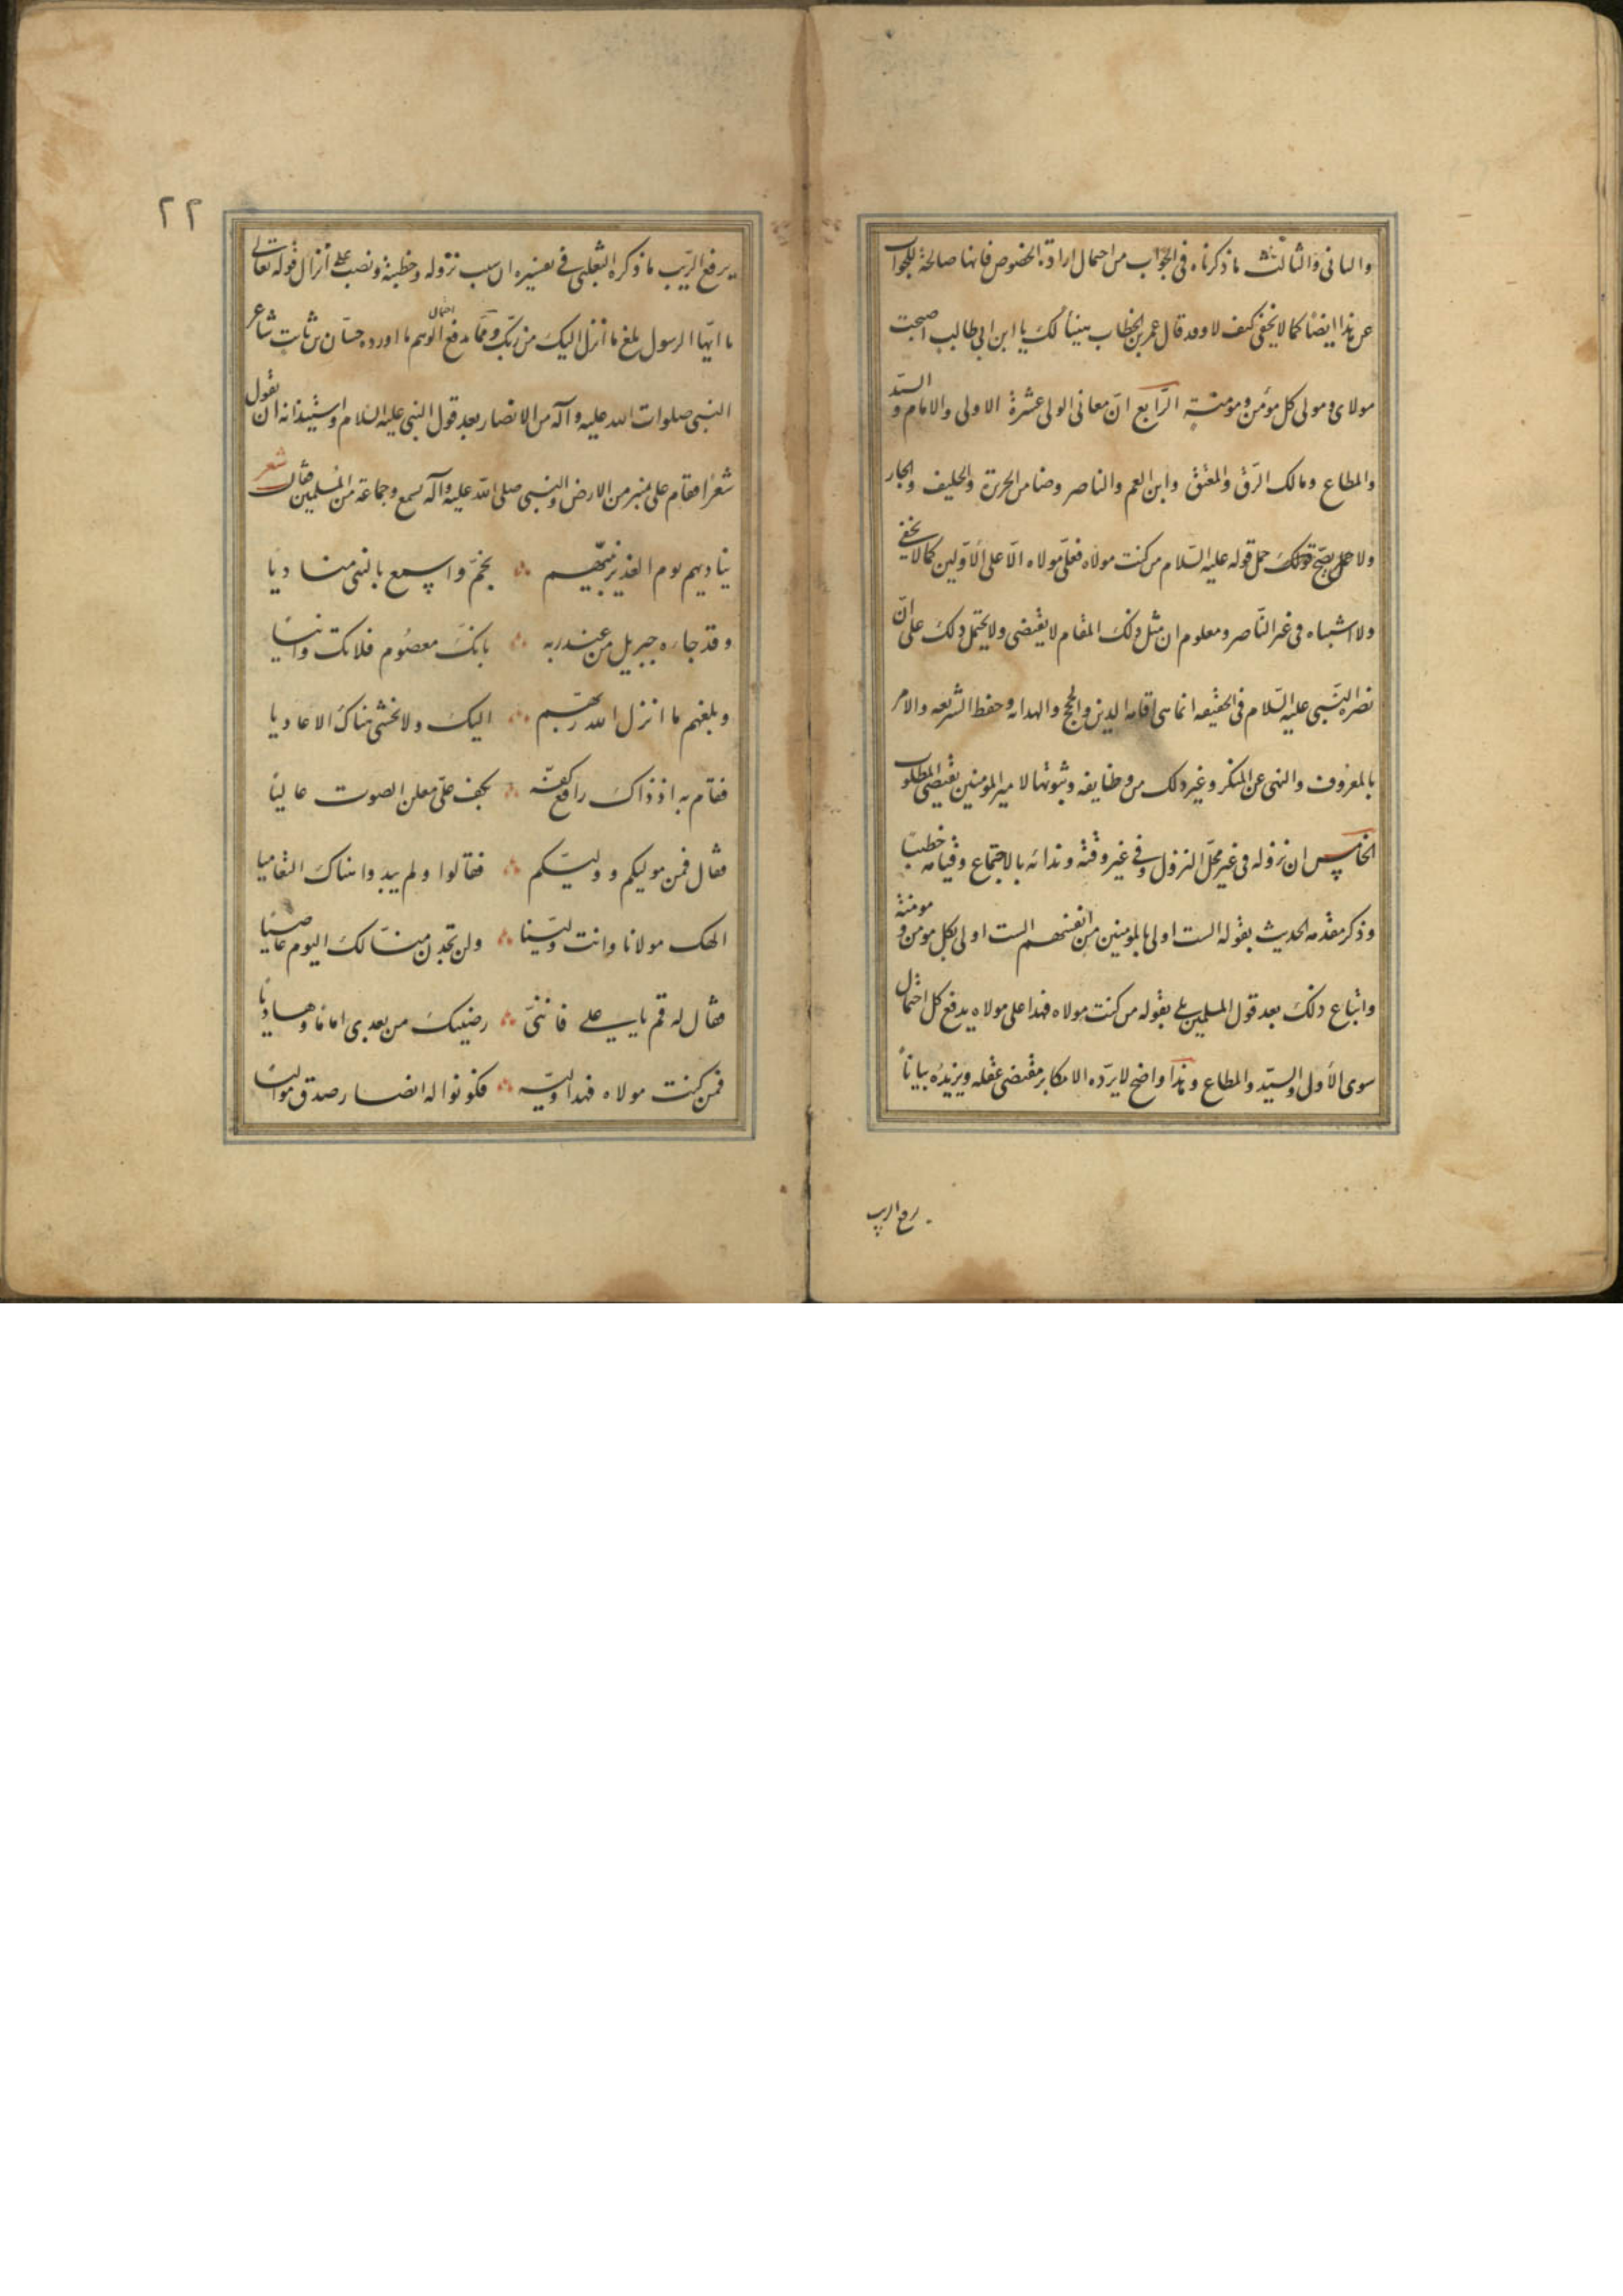 والثاني والثالث ما ذكرناه في الجواب من احتمال ارادة الخصوص فانها صالحة للجواب
عن هذا ايضا كما لا يخفى كيف لا وقد قال عمر بن الخطاب هنيئا لك يا ابن ابي طالب اصبحت
مولاى ومولى كل مؤمن ومؤمنة الرابع انّ معانى الولى عشرة الاولى والامام والسيّد
والمطاع ومالك الرّق والمعتق وابن العم والناصر وضامن الجريرة والحليف والجار
ولا يصحّ حمل قوله عليه السّلام من كنت مولاه فعلىّ مولاه الّا على الأوّلين كما لا يخفى
ولا اشتباه في غير النّاصر ومعلوم ان مثل ذلك المقام لا يقتضى ولا يحتمل ذلك على انّ
نصرة النّبي عليه السّلام في الحقيقه انما هى اقامة الدين والحج والهداية وحفظ الشريعه والامر
بالمعروف والنهى عن المنكر وغير ذلك من وظايفه وثبوتها لامير المومنين يقتضى المطلوب
الخامس ان نزوله في غير محلّ النزول وفي غير وقته وندائه بالاجتماع وقيامه خطيبا
وذكر مقدمه الحديث بقوله الست اولى بالمومنين من انفسهم الست اولى بكل مومن ومومنة
واتباع ذلك بعد قول المسلمين بلى بقوله من كنت مولاه فهذا على مولاه يدفع كل احتمال
سوى الأولى والسيّد والمطاع وهذا واضح لا يردّه الا مكابر مقتضى عقله ويزيده بياناً
يرفع الريب
٢٢
يرفع الرّيب ما ذكره الثعلبى في تفسيره ان سبب نزوله وخطبته ونصب على انزال قوله تعالى
يا ايّها الرسول بلغ ما انزل اليك من ربّك وممّا يدفع احتمال الوهم ما اورده حسّان بن ثابت شاعر
النبي صلوات الله عليه وآله من الانصار بعد قول النبي عليه السّلام واستيذانه ان يقول
شعرا فقام على منبر من الارض والنبي صلى الله عليه وآله يسمع وجماعة من المسلمين فقال شعر
يناديهم يوم الغدير نبيّهم ∴ بخمّ واسمع بالنبى مناديا
وقد جاءه جبريل من عند ربه ∴ بانك معصوم فلا تك وانيا
وبلغهم ما انزل الله ربّهم ∴ اليك ولا تخشى هناك الاعاديا
فقام به اذ ذاك رافع كفّه ∴ بكف علىّ معلن الصوت عاليا
فقال فمن موليكم ووليّكم ∴ فقالوا ولم يبدوا هناك التعاميا
الهك مولانا وانت وليّنا ∴ ولن تجدن منّا لك اليوم عاصيا
فقال له قم يا على فاننّى ∴ رضيتك من بعدى اماما وهاديا
فمن كنت مولاه فهذا وليّه ∴ فكونوا له انصار صدق مواليا